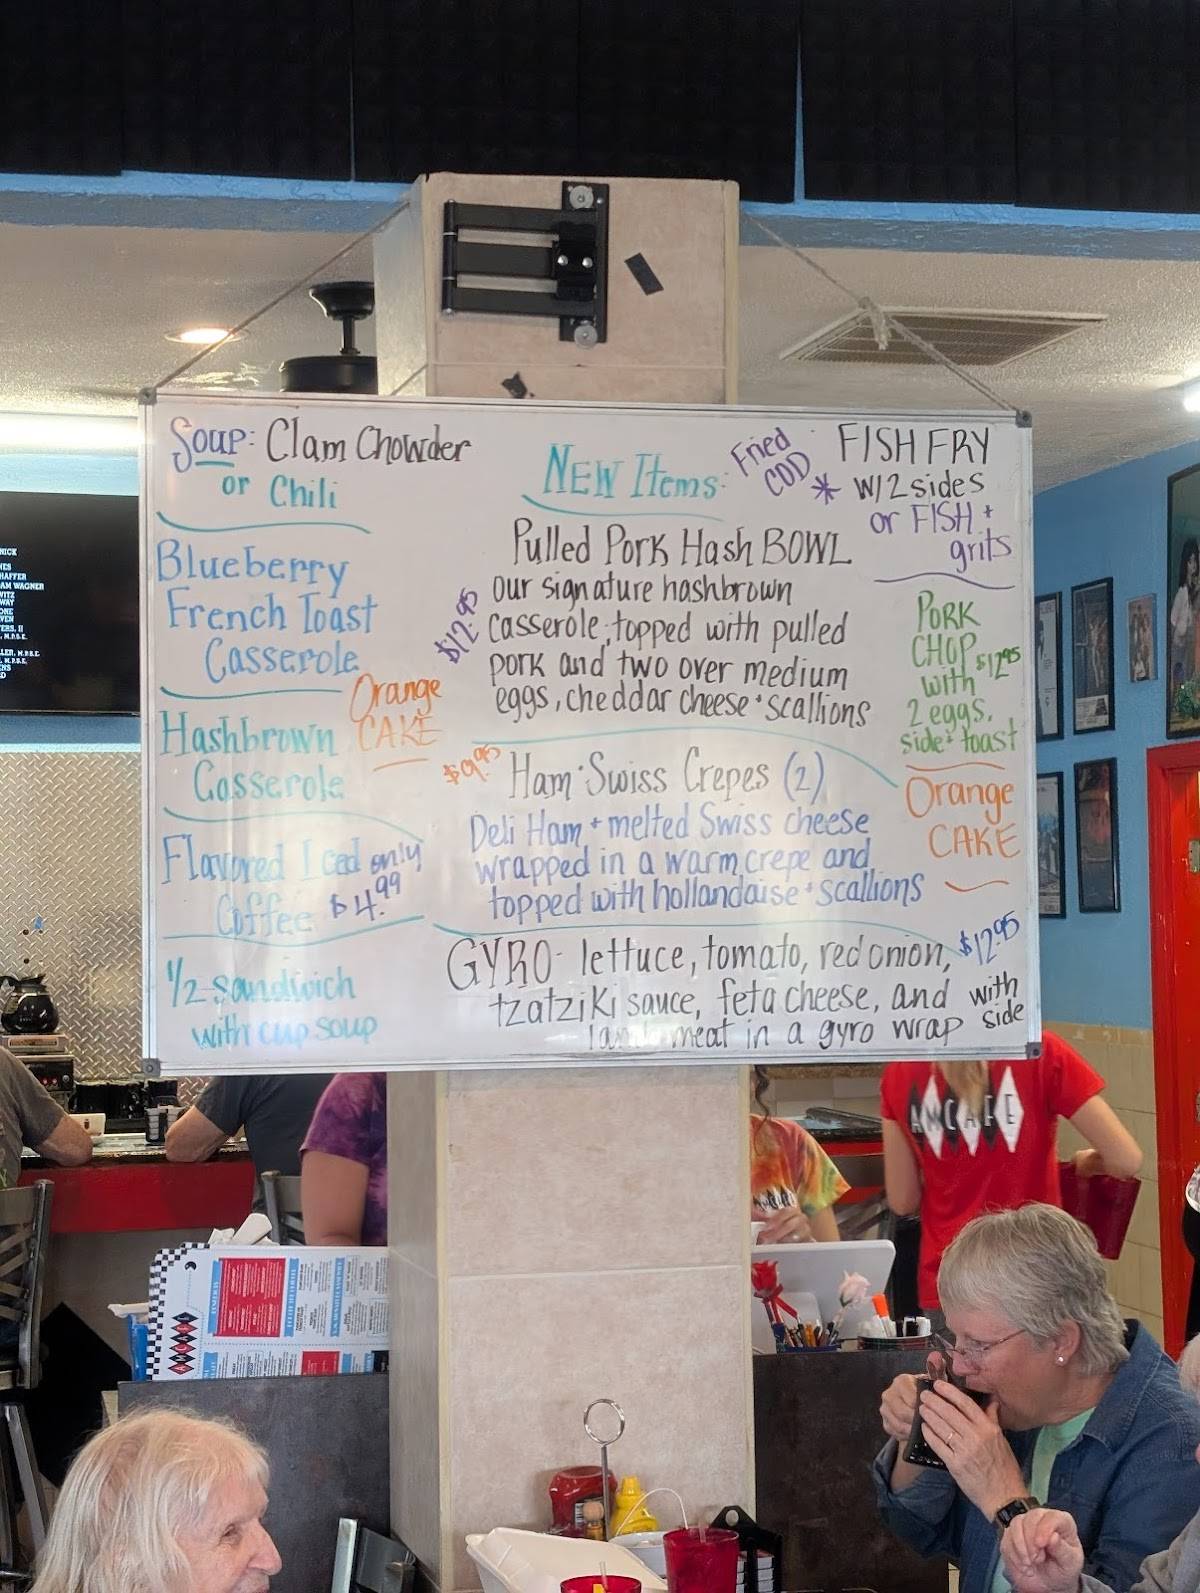 Soup: Clam Chowder
or Chili
Blueberry
French Toast
Casserole
Orange
CAKE
Hashbrown
Casserole
Flavored Iced only
Coffee $4.99
1/2 sandwich
with cup soup
NEW Items:
Pulled Pork Hash BOWL
$12.95
our signature hashbrown
casserole, topped with pulled
pork and two over medium
eggs, cheddar cheese + scallions
$9.95
Ham + Swiss Crepes (2)
Deli Ham + melted Swiss cheese
wrapped in a warm crepe and
topped with hollandaise + scallions
GYRO - lettuce, tomato, red onion, $12.95
tzatziki sauce, feta cheese, and with
lamb meat in a gyro wrap side
Fried
COD
* FISH FRY
W/2 sides
or FISH +
grits
PORK
CHOP $12.95
with
2 eggs,
side + toast
Orange
CAKE
NICK
SHAFFER
AM WAGNER
AMCAFE